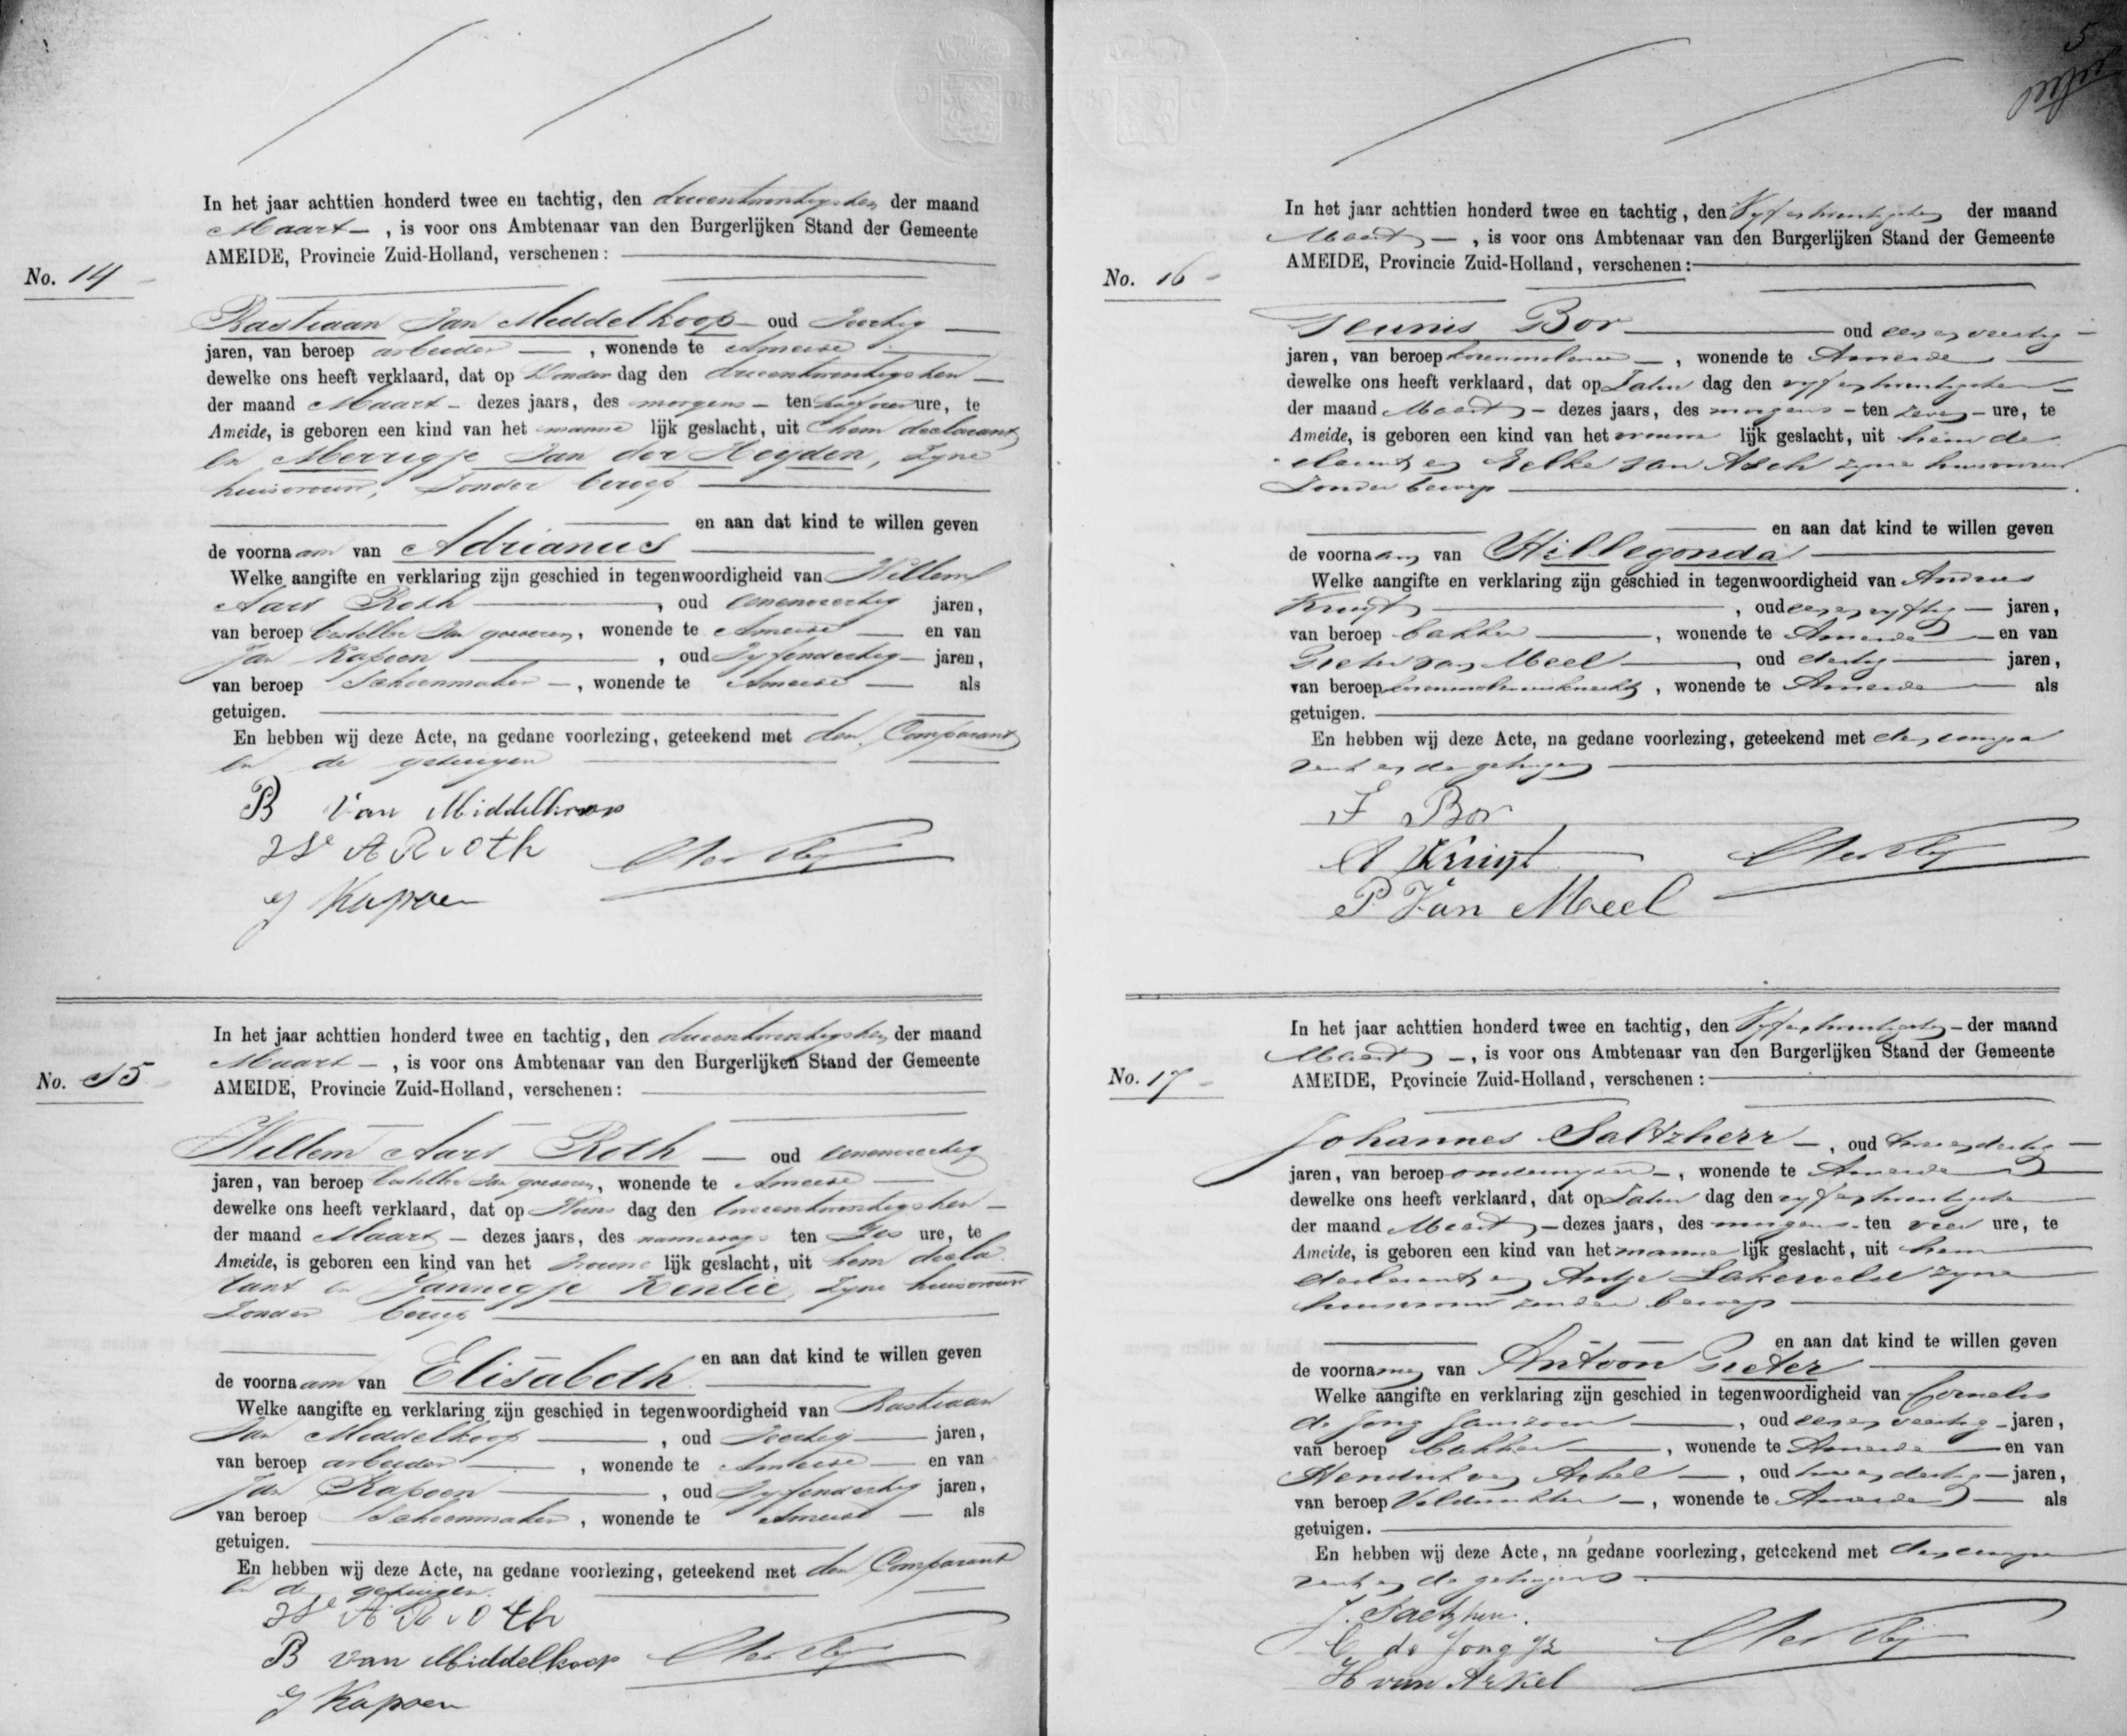 In het jaar achttien honderd twee en tachtig, den drieentwintigsten der maand
Maart, is voor ons Ambtenaar van den Burgerlijken Stand der Gemeente
AMEIDE, Provincie Zuid-Holland, verschenen:
No. 14
Bastiaan van Middelkoop oud veertig
jaren, van beroep arbeider, wonende te Ameide
dewelke ons heeft verklaard, dat op Donderdag den drieentwintigsten
der maand Maart dezes jaars, des morgens ten ure, te
Ameide, is geboren een kind van het mannelijk geslacht, uit hem declarant
en Merrigje van der Heijden, zyne
huisvrouw, zonder beroep
en aan dat kind te willen geven
de voornaam van Adrianus
Welke aangifte en verklaring zijn geschied in tegenwoordigheid van Willem
Aart Roth, oud eenenveertig jaren,
van beroep besteller van goederen, wonende te Ameide en van
Jan Kapoen, oud vyfendertig jaren,
van beroep Schoenmaker, wonende te Ameide als
getuigen.
En hebben wij deze Acte, na gedane voorlezing, geteekend met den Comparant
en de getuigen
B van Middelkoop
W A Roth
J Kapoen
In het jaar achttien honderd twee en tachtig, den drieentwintigsten der maand
Maart, is voor ons Ambtenaar van den Burgerlijken Stand der Gemeente
No. 15
AMEIDE, Provincie Zuid-Holland, verschenen:
Willem Aart Roth oud eenenveertig
jaren, van beroep besteller van goederen, wonende te Ameide
dewelke ons heeft verklaard, dat op Woensdag den tweeentwintigsten
der maand Maart dezes jaars, des namiddags ten zes ure, te
Ameide, is geboren een kind van het vrouwelijk geslacht, uit hem decla
rant en Jannigje Kentie, zyne huisvrouw
zonder beroep
en aan dat kind te willen geven
de voornaam van Elisabeth
Welke aangifte en verklaring zijn geschied in tegenwoordigheid van Bastiaan
van Middelkoop, oud veertig jaren,
van beroep arbeider, wonende te Ameide en van
Jan Kapoen, oud vyfendertig jaren,
van beroep Schoenmaker, wonende te Ameide als
getuigen.
En hebben wij deze Acte, na gedane voorlezing, geteekend met den Comparant
en de getuigen.
W A Roth
B van Middelkoop
J Kapoen
5
In het jaar achttien honderd twee en tachtig, den Vyfentwintigsten der maand
Maart, is voor ons Ambtenaar van den Burgerlijken Stand der Gemeente
AMEIDE, Provincie Zuid-Holland, verschenen:
No. 16
Teunis Bor oud een en veertig
jaren, van beroep korenmolenaar, wonende te Ameide
dewelke ons heeft verklaard, dat op Zaturdag den vyfentwintigsten
der maand Maart dezes jaars, des morgens ten zeven ure, te
Ameide, is geboren een kind van het vrouwelijk geslacht, uit hem de
clarant en Eelke van Asch zyne huisvrouw
zonder beroep
en aan dat kind te willen geven
de voornaam van Hillegonda
Welke aangifte en verklaring zijn geschied in tegenwoordigheid van Andries
Kruyt, oud een en vyftig jaren,
van beroep bakker, wonende te Ameide en van
Pieter van Meel, oud dertig jaren,
van beroep korenmolenaarsknecht, wonende te Ameide als
getuigen.
En hebben wij deze Acte, na gedane voorlezing, geteekend met den compa
rant en de getuigen
T Bor
A Kruijt
P Van Meel
In het jaar achttien honderd twee en tachtig, den Vyfentwintigsten der maand
Maart, is voor ons Ambtenaar van den Burgerlijken Stand der Gemeente
No. 17
AMEIDE, Provincie Zuid-Holland, verschenen:
Johannes Saltzherr, oud twee en dertig
jaren, van beroep onderwyzer, wonende te Ameide
dewelke ons heeft verklaard, dat op Zaturdag den vyfentwintigsten
der maand Maart dezes jaars, des morgens ten vier ure, te
Ameide, is geboren een kind van het mannelijk geslacht, uit hem
declarant en Antje Lakerveld zyne
huisvrouw zonder beroep
en aan dat kind te willen geven
de voornamen van Antoon Pieter
Welke aangifte en verklaring zijn geschied in tegenwoordigheid van Cornelis
de Jong Janszoon, oud een en veertig jaren,
van beroep bakker, wonende te Ameide en van
Hendrik van Arkel, oud twee en dertig jaren,
van beroep Veldwachter, wonende te Ameide als
getuigen.
En hebben wij deze Acte, na gedane voorlezing, geteekend met den compa
rant en de getuigen
J. Saltzherr.
C de Jong Jz
H van Arkel